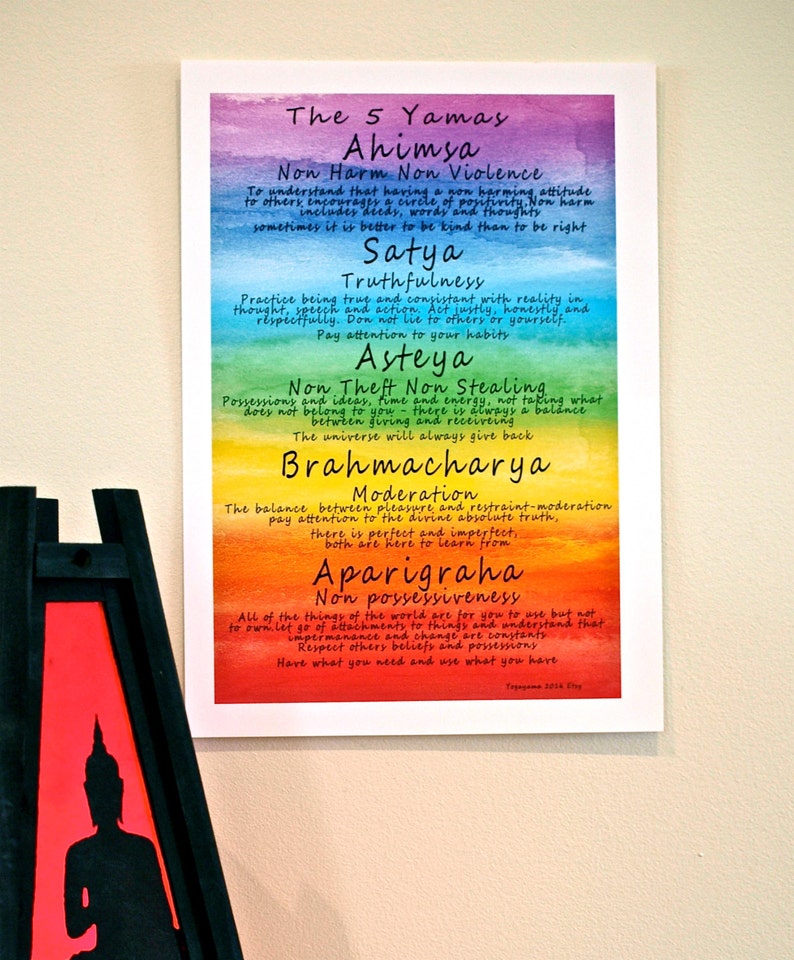 The 5 Yamas
Ahimsa
Non Harm Non Violence
To understand that having a non harming attitude
to others encourages a circle of positivity,Non harm
includes deeds, words and thoughts
sometimes it is better to be kind than to be right
Satya
Truthfulness
Practice being true and consistant with reality in
thought, speech and action. Act justly, honestly and
respectfully. Don not lie to others or yourself.
Pay attention to your habits
Asteya
Non Theft Non Stealing
Possessions and ideas, time and energy, not taking what
does not belong to you - there is always a balance
between giving and receiveing
The universe will always give back
Brahmacharya
Moderation
The balance between pleasure and restraint-moderation
pay attention to the divine absolute truth,
there is perfect and imperfect,
both are here to learn from
Aparigraha
Non possessiveness
All of the things of the world are for you to use but not
to own.let go of attachments to things and understand that
impermanance and change are constants
Respect others beliefs and possessions
Have what you need and use what you have
Yogayama 2014 Etsy